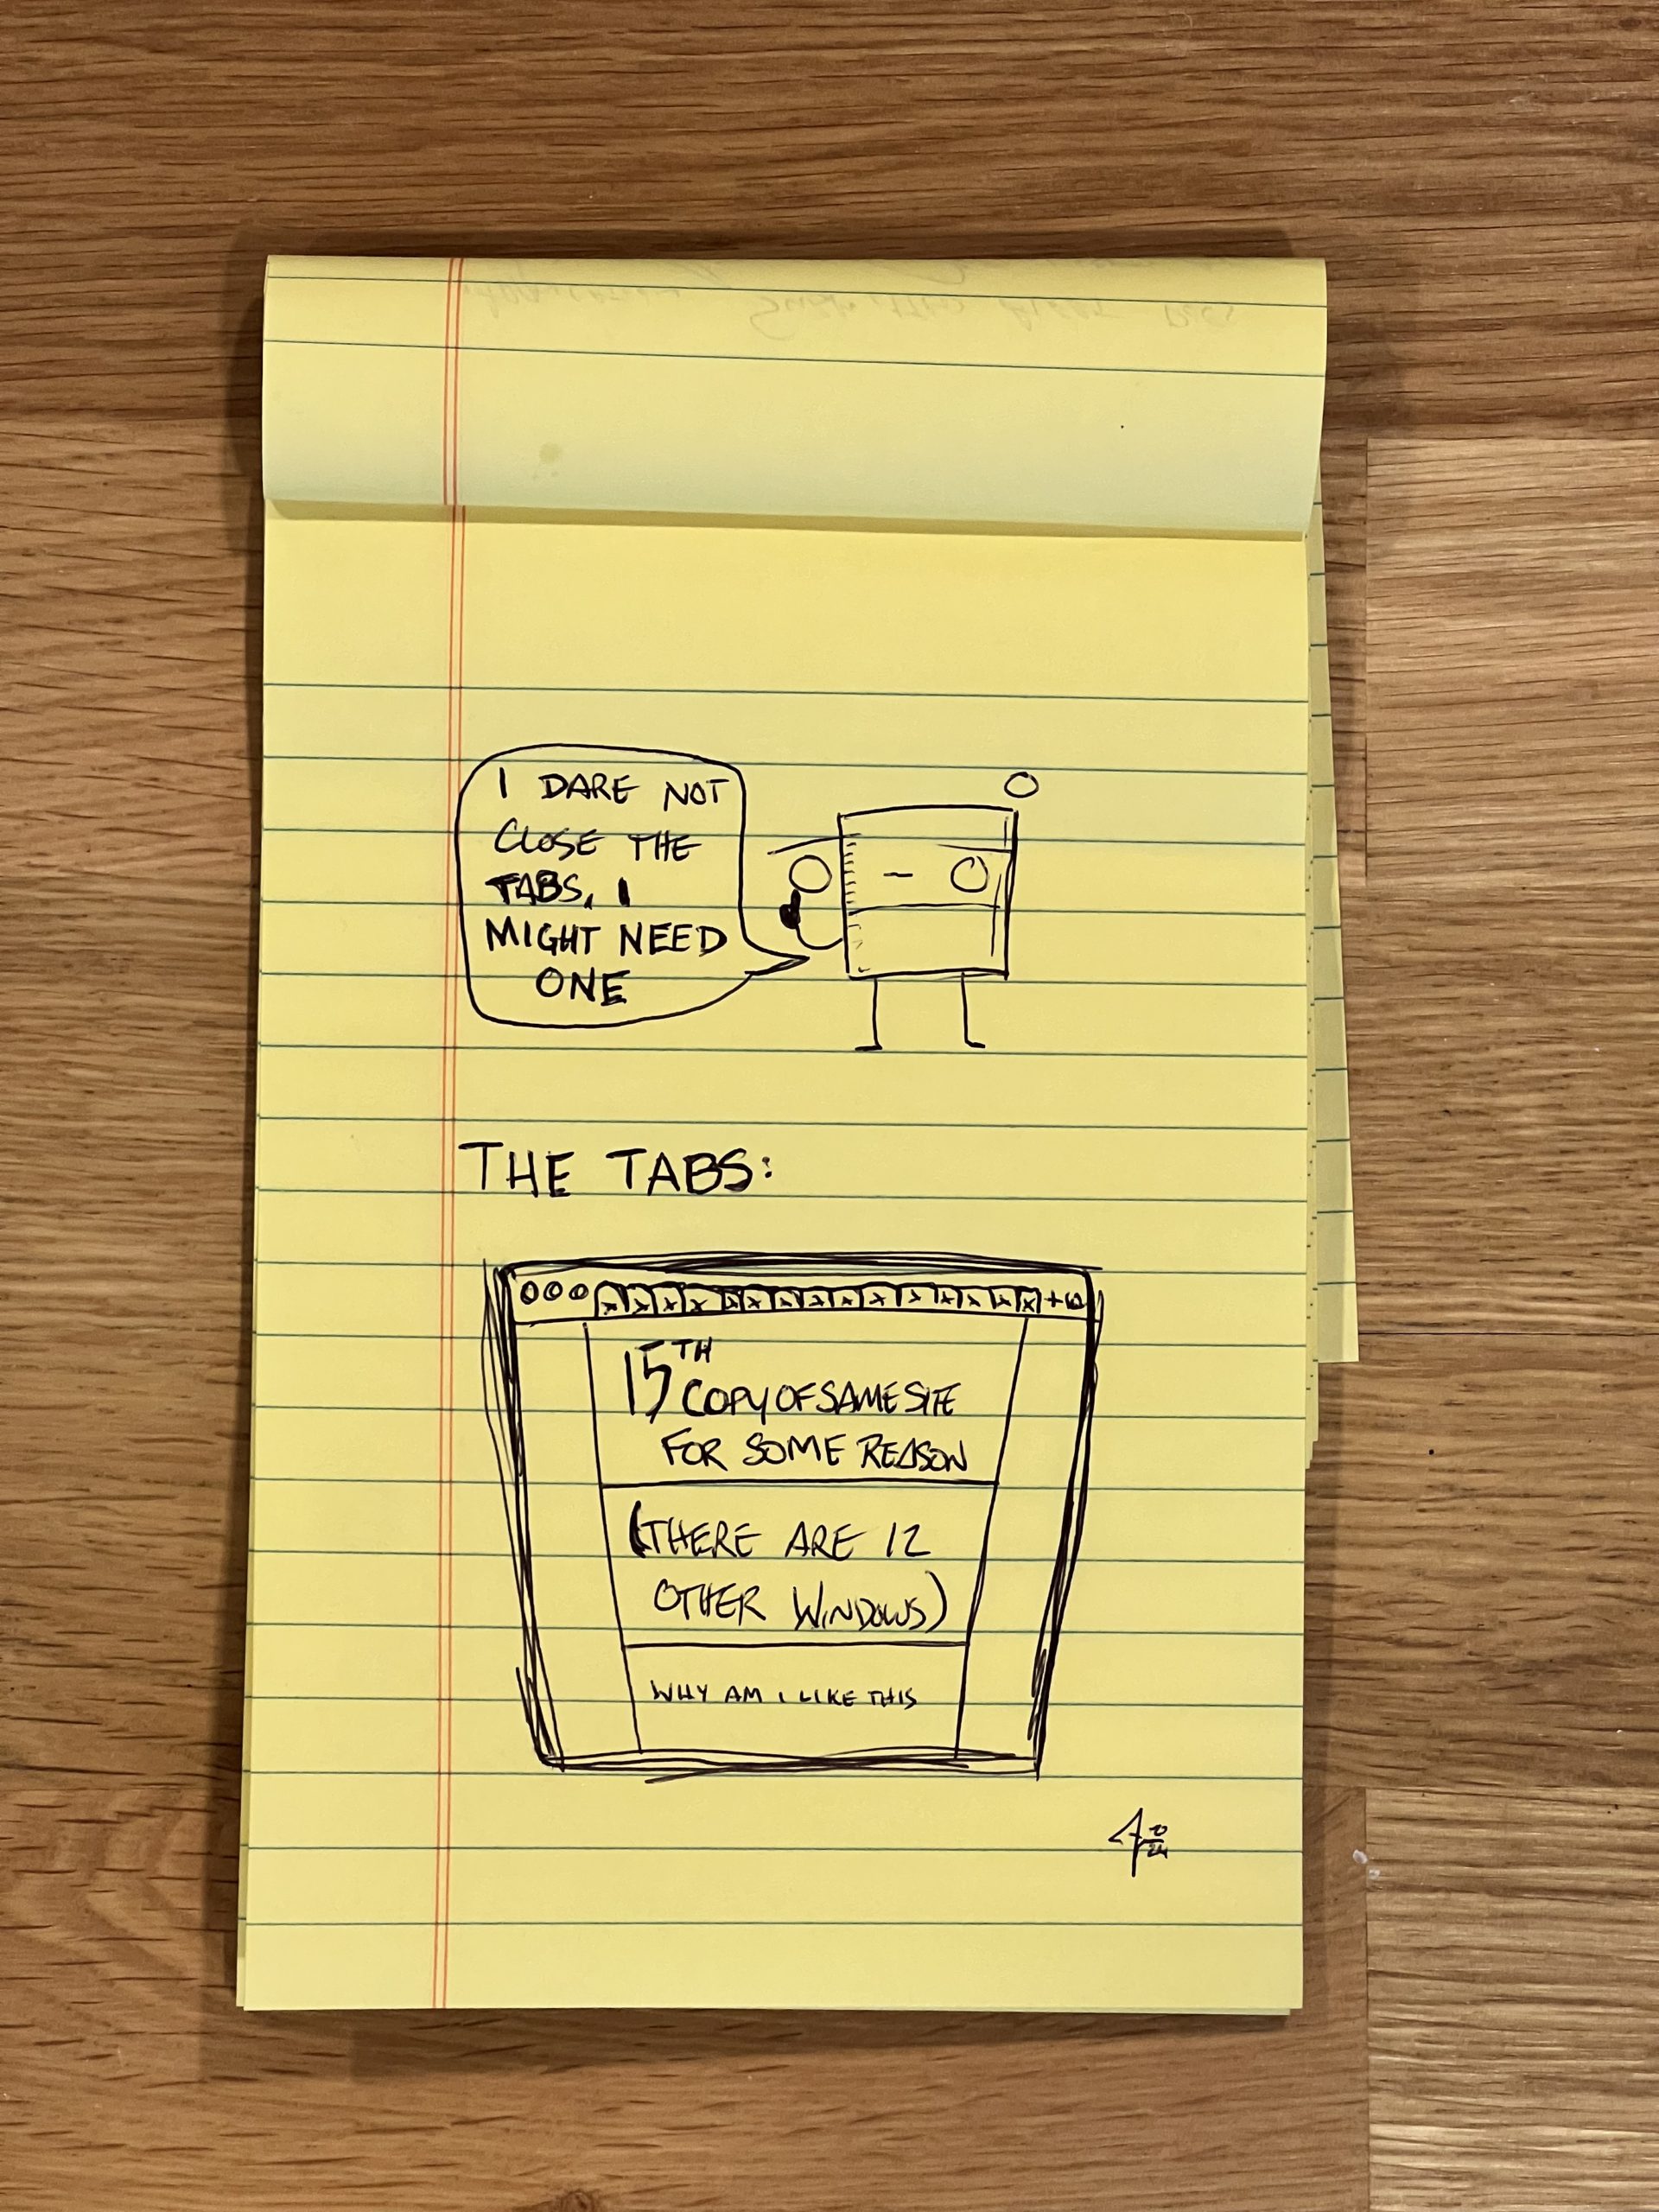 I DARE NOT
CLOSE THE
TABS, I
MIGHT NEED
ONE
THE TABS:
15TH
COPY OF SAME SITE
FOR SOME REASON
(THERE ARE 12
OTHER WINDOWS)
WHY AM I LIKE THIS